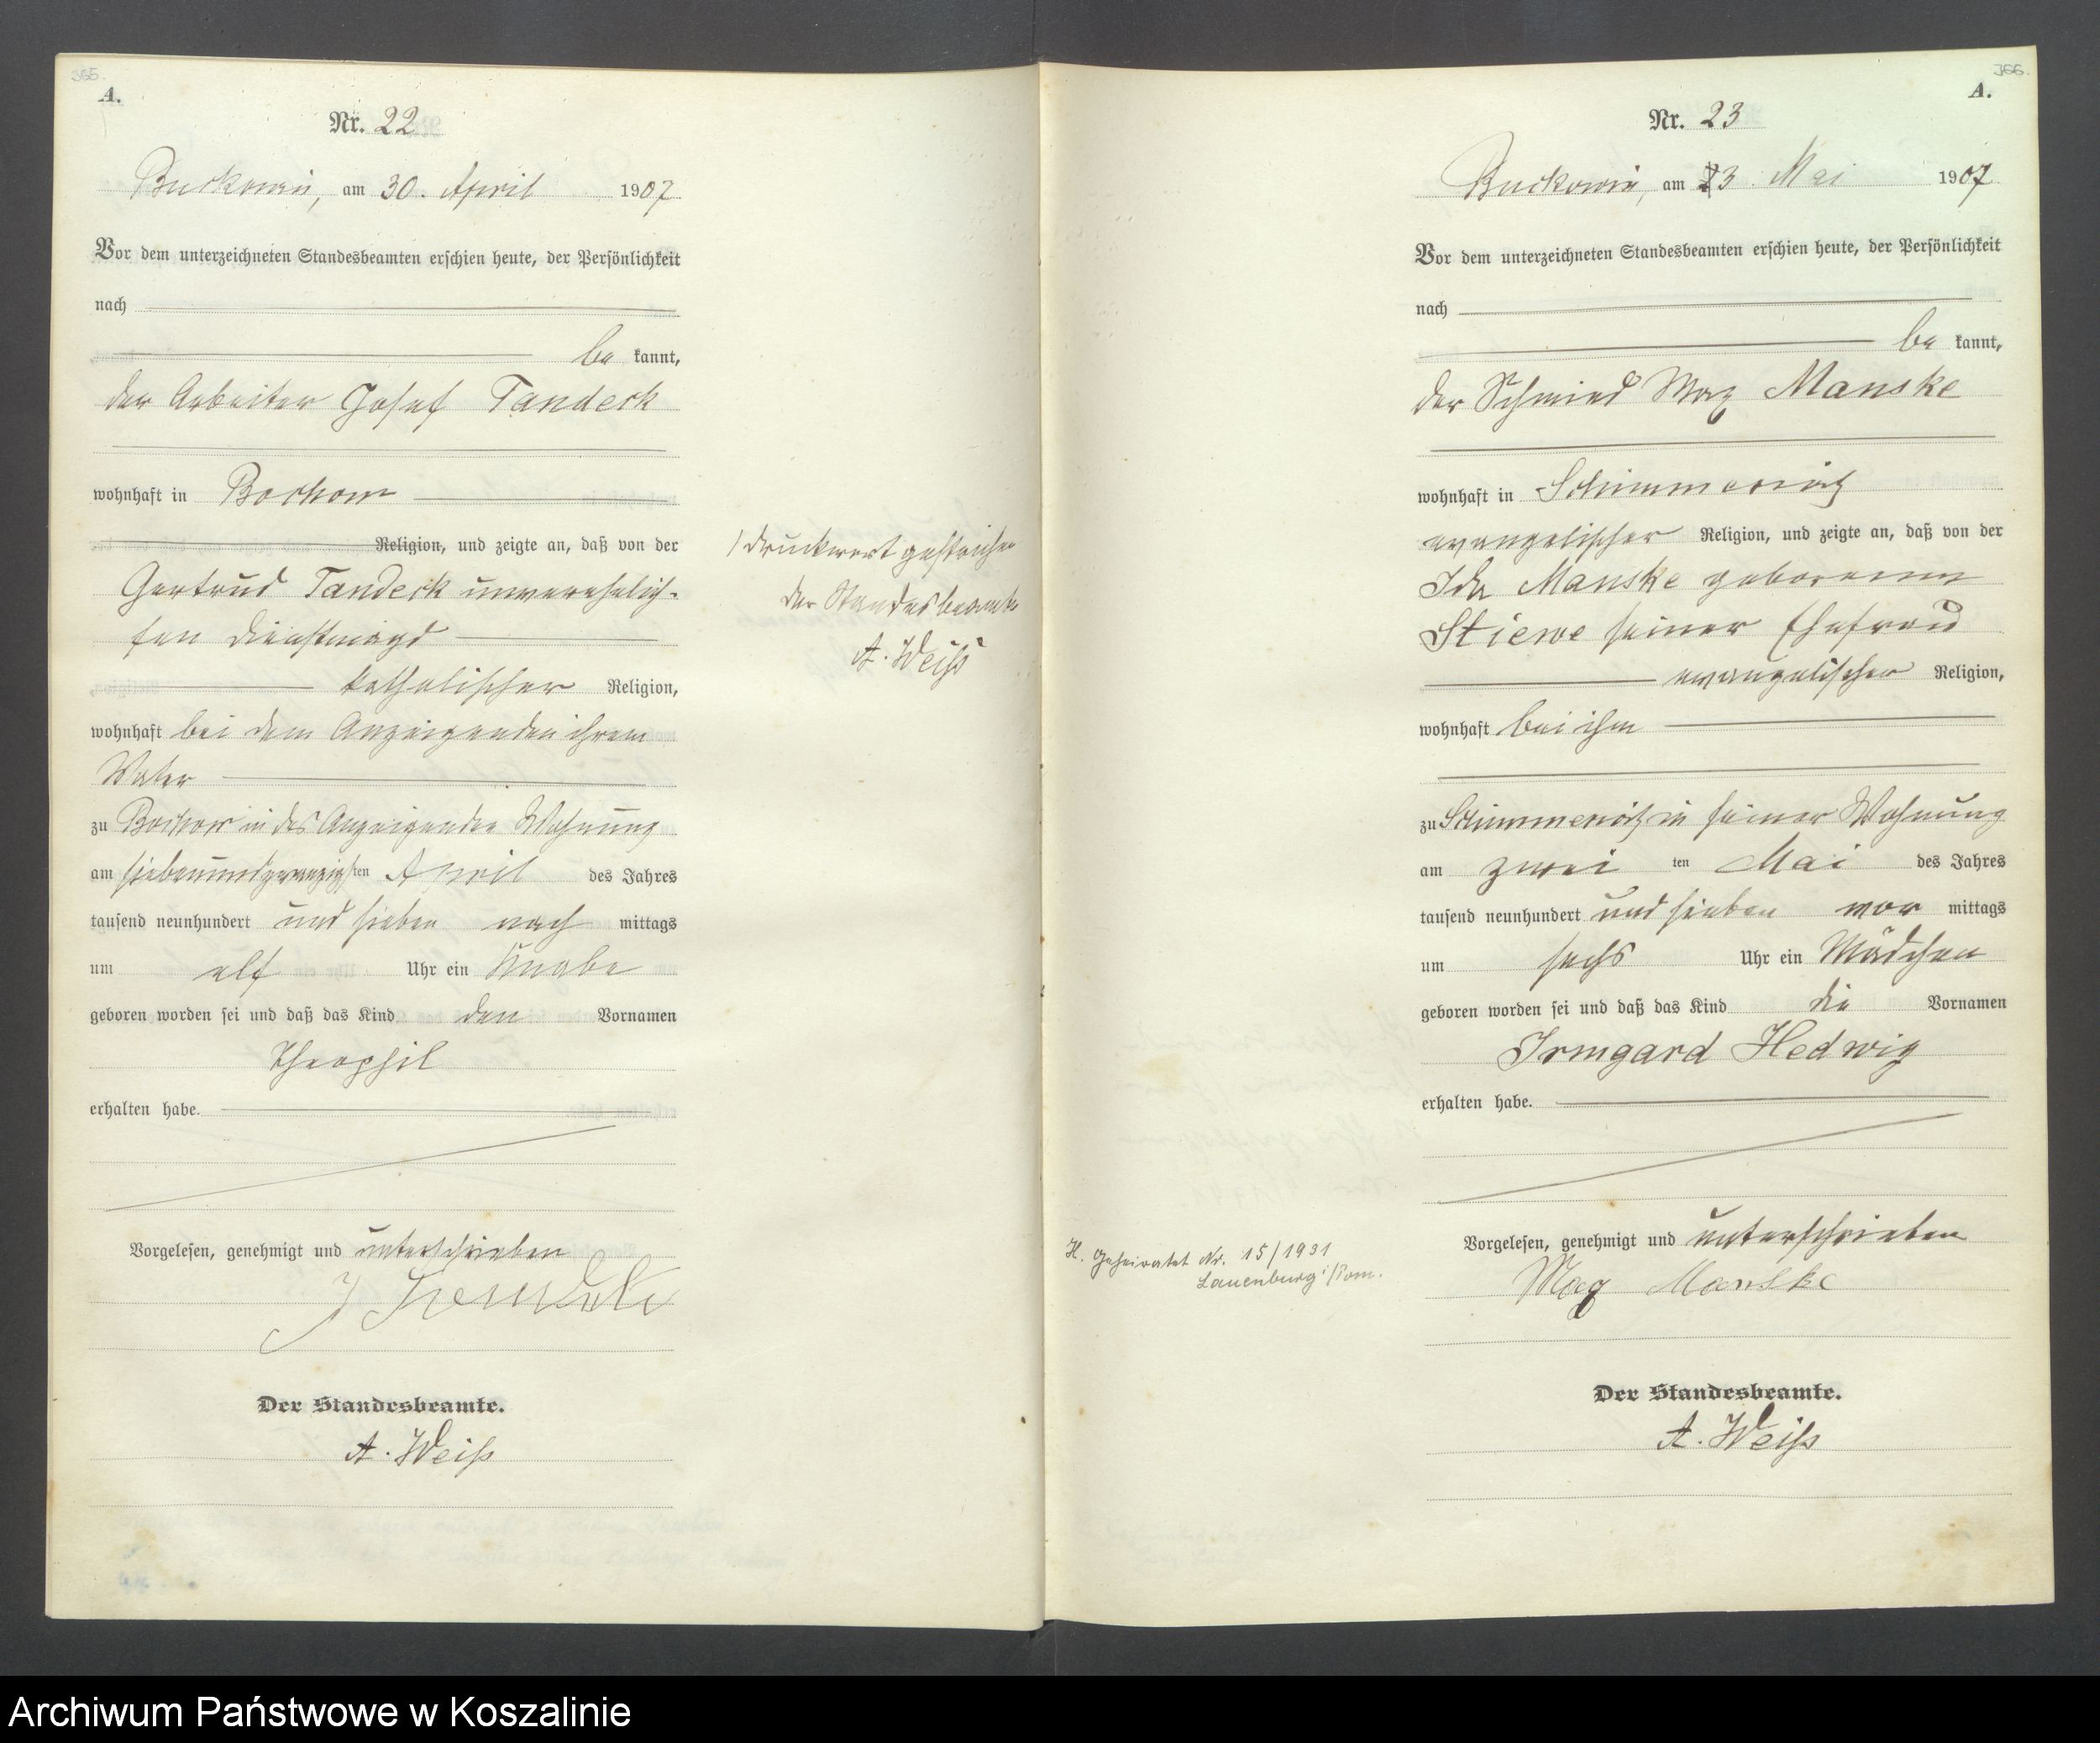 355.
A.
Nr. 22
Buckowin, am 30. April 1907
Vor dem unterzeichneten Standesbeamten erschien heute, der Persönlichkeit
nach
be kannt,
der Arbeiter Josef Tandeck
wohnhaft in Bochow
Religion, und zeigte an, daß von der
Gertrud Tandeck unverehelich-
ten Dienstmagd
katholischer Religion,
wohnhaft bei dem Anzeigenden ihrem
Vater
zu Bochow in des Anzeigenden Wohnung
am siebenundzwanzigsten April des Jahres
tausend neunhundert und sieben nach mittags
um elf Uhr ein Knabe
geboren worden sei und daß das Kind den Vornamen
Theophil
erhalten habe.
Vorgelesen, genehmigt und unterschrieben
J
Der Standesbeamte.
A. Weiß
1 Druckwort gestrichen
der Standesbeamte
A. Weiß
366.
A.
Nr. 23
Buckowin, am 3. Mai 1907
Vor dem unterzeichneten Standesbeamten erschien heute, der Persönlichkeit
nach
be kannt,
der Schmied Max Manske
wohnhaft in Schimmerwitz
evangelischer Religion, und zeigte an, daß von der
Ida Manske geborenen
Stiewe seiner Ehefrau
evangelischer Religion,
wohnhaft bei ihm
zu Schimmerwitz in seiner Wohnung
am zwei ten Mai des Jahres
tausend neunhundert und sieben vor mittags
um sechs Uhr ein Mädchen
geboren worden sei und daß das Kind die Vornamen
Irmgard Hedwig
erhalten habe.
Vorgelesen, genehmigt und unterschrieben
Max Manske
Der Standesbeamte.
A. Weiß
H. Geheiratet Nr. 15/1931
Lauenburg i/Pom.
Archiwum Państwowe w Koszalinie